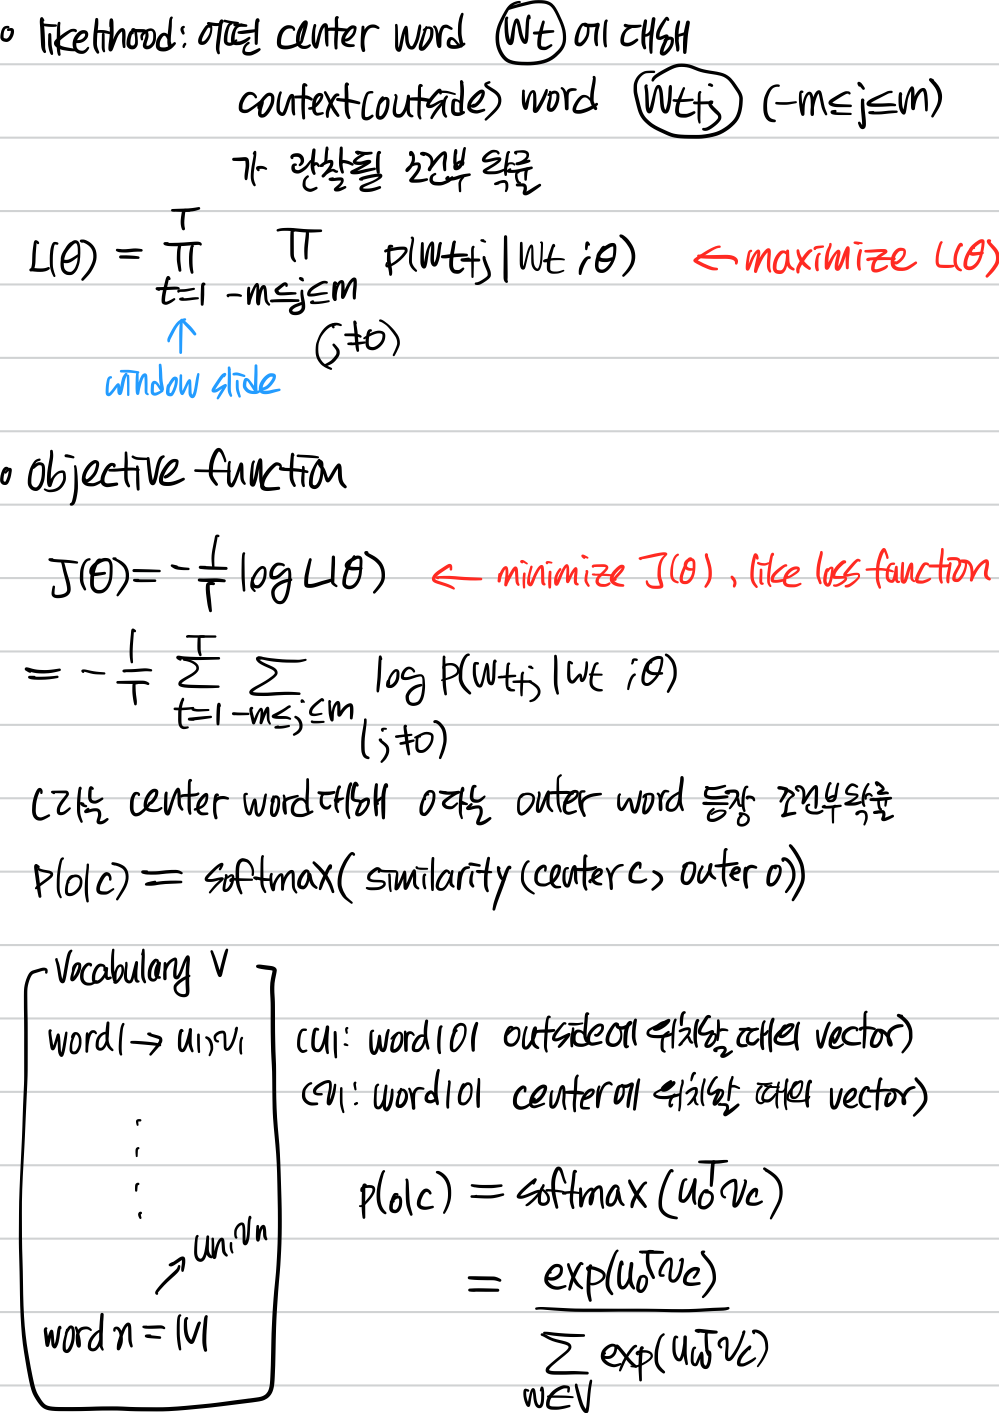 • likelihood: 어떤 center word Wt 에 대해
context(outside) word Wt+j (-m≤j≤m)
가 관찰될 조건부 확률
L(θ) = ∏ t=1 T ∏ -m≤j≤m (j≠0) P(Wt+j | Wt ; θ) ← maximize L(θ)
↑
window slide
• objective function
J(θ) = - 1/T log L(θ) ← minimize J(θ), like loss function
= - 1/T ∑ t=1 T ∑ -m≤j≤m (j≠0) log P(Wt+j | Wt ; θ)
C라는 center word 대해 O라는 outer word 등장 조건부확률
P(o|c) = softmax(similarity(center c, outer o))
Vocabulary V
word1 → u1, v1 (u1: word1이 outside에 위치할 때의 vector)
(v1: word1이 center에 위치할 때의 vector)
⋮
P(o|c) = softmax(uoᵀvc)
↗ un, vn
= exp(uoᵀvc) / ∑ w∈V exp(uwᵀvc)
word n = |V|